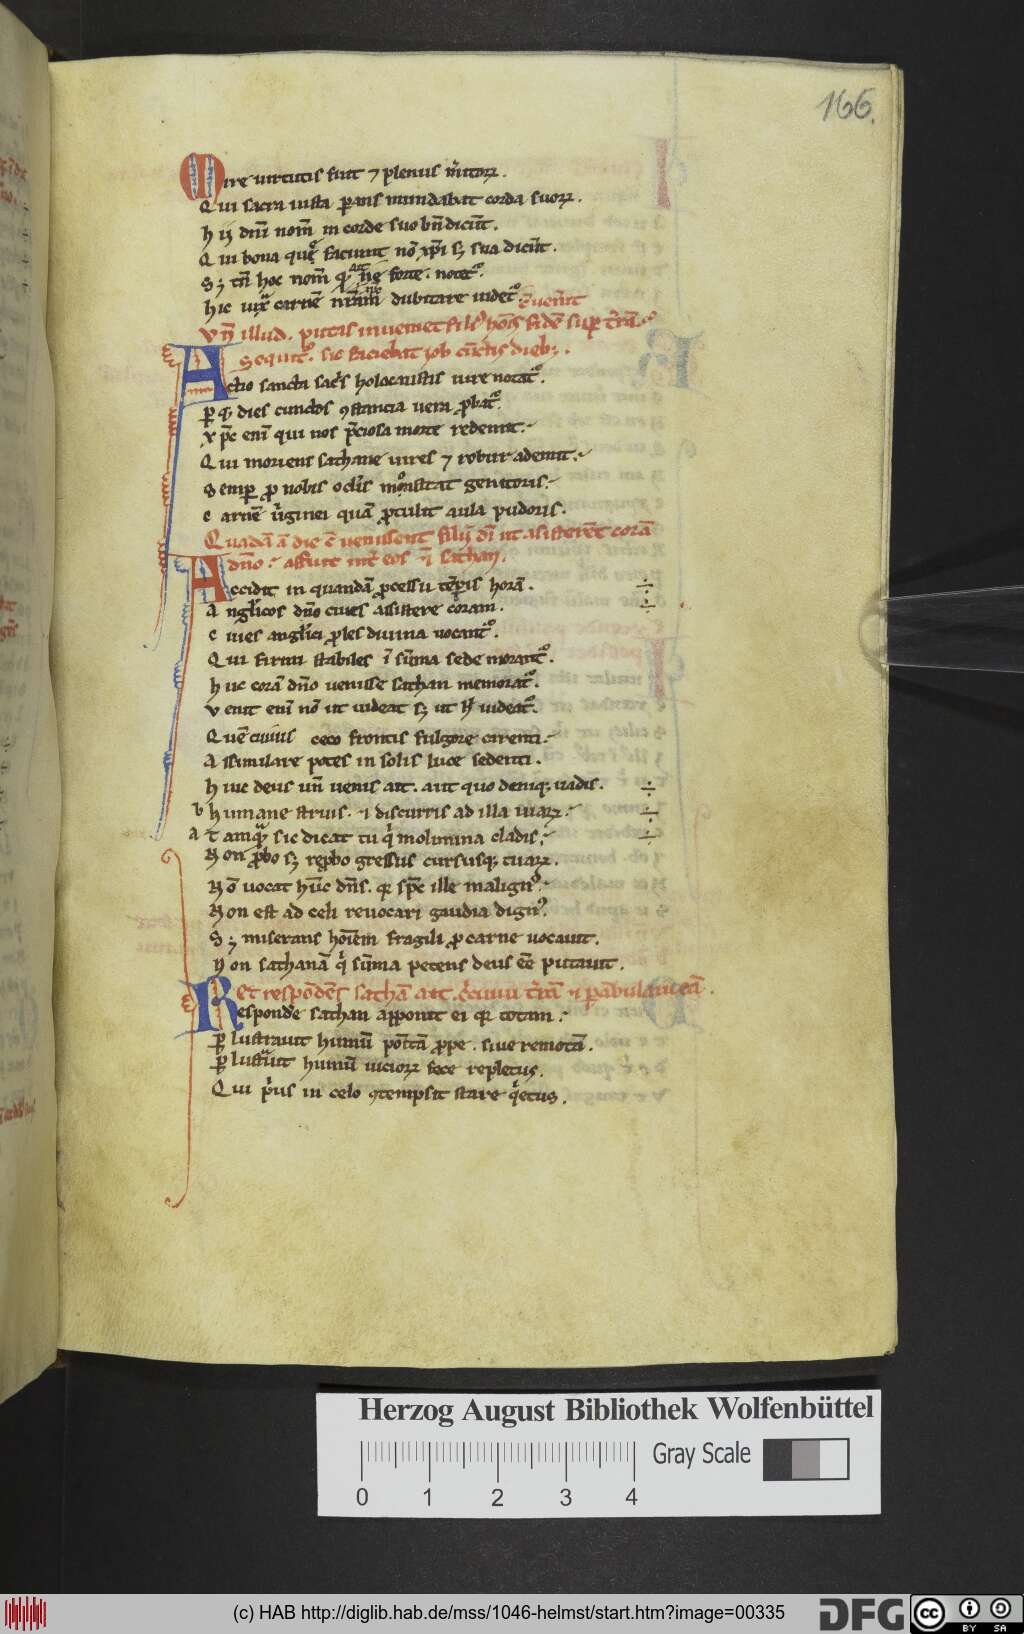 166.
Mire uirtutis fuit ⁊ plenus m̅itoꝝ.
Qui sacra iusta parans mundabat corda suoꝝ.
hij dn̄i nom̄ in corde suo bn̄dicūt.
Qui bona queq̨ faciunt nō xp̄i sꝫ sua dicūt.
hic uix carnē
vn̄ illud. putas inueniet filiꝰ hoīs fidē suꝑ t̄rā.
Sequitᷣ. sic faciebat iob cūctis diebꝫ.
Actio sancta sac̄s holocaustis iure notatᷣ.
ꝑ qꝫ dies cunctos ꝯstancia uera ꝓbatᷣ.
xp̄c enī qui nos p̄ciosa morte redemit.
Qui moriens sathane uires ⁊ robur ademit.
Semꝑ ꝓ nobis oclis monstrat genitoris.
carnē uͥginei quā ꝓtulit aula pudoris.
Quadā ā die cū uenissent filij dī ut assisterēt corā
dn̄o. affuit int̄ eos ⁊ī sathan.
Accidit in quandā ꝓcessu tēꝑis horā.
Anglicos dn̄o ciues assistere coram.
ciues anglici ꝓles diuina uocantᷣ.
Qui firmi stabiles ī sūma sede morantᷣ.
huc corā dn̄o uenisse sathan memoratᷣ.
venit enī nō ut uideat sꝫ ut uideatᷣ.
Quē ciuius ceco frontis fulgore carenti.
Assimilare potes in solis luce sedenti.
huic deus un̄ uenis ait. aut quo deniqꝫ uadis.
b humane struis. ⁊ discurris ad illa uiaꝝ.
a Tamqᷓ sic dicat tu qͥ molimina cladis.
Non ꝓbo sꝫ reꝓbo gressus cursusqꝫ tuaꝝ.
Nō uocat hūc dn̄s. qꝛ sp̄c ille malignꝰ.
Non est ad celi reuocari gaudia dignꝰ.
Sꝫ miserans hoīem fragili ꝓ carne uocauit.
Non sathanā qͥ sūma petens deus eē putauit.
Et respōdēs sathā ait. c̄cuiui t̄rā ⁊ ꝑābulaui eā.
Responde sathan apponit ei qꝛ totam.
ꝑlustrauit humū ꝓpe. siue remotā.
ꝑlustᷓuit humū uicioꝝ fece repletus.
Qui pͥus in celo ꝯtempsit stare qͥetus.
Herzog August Bibliothek Wolfenbüttel
Gray Scale
0 1 2 3 4
(c) HAB http://diglib.hab.de/mss/1046-helmst/start.htm?image=00335
DFG
cc
BY SA